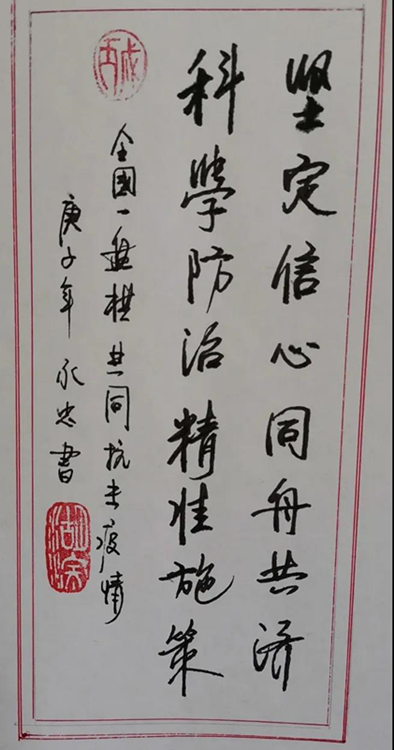 坚定信心同舟共济
科學防治精准施策
全國一盤棋共同抗击疫情
庚子年永忠書